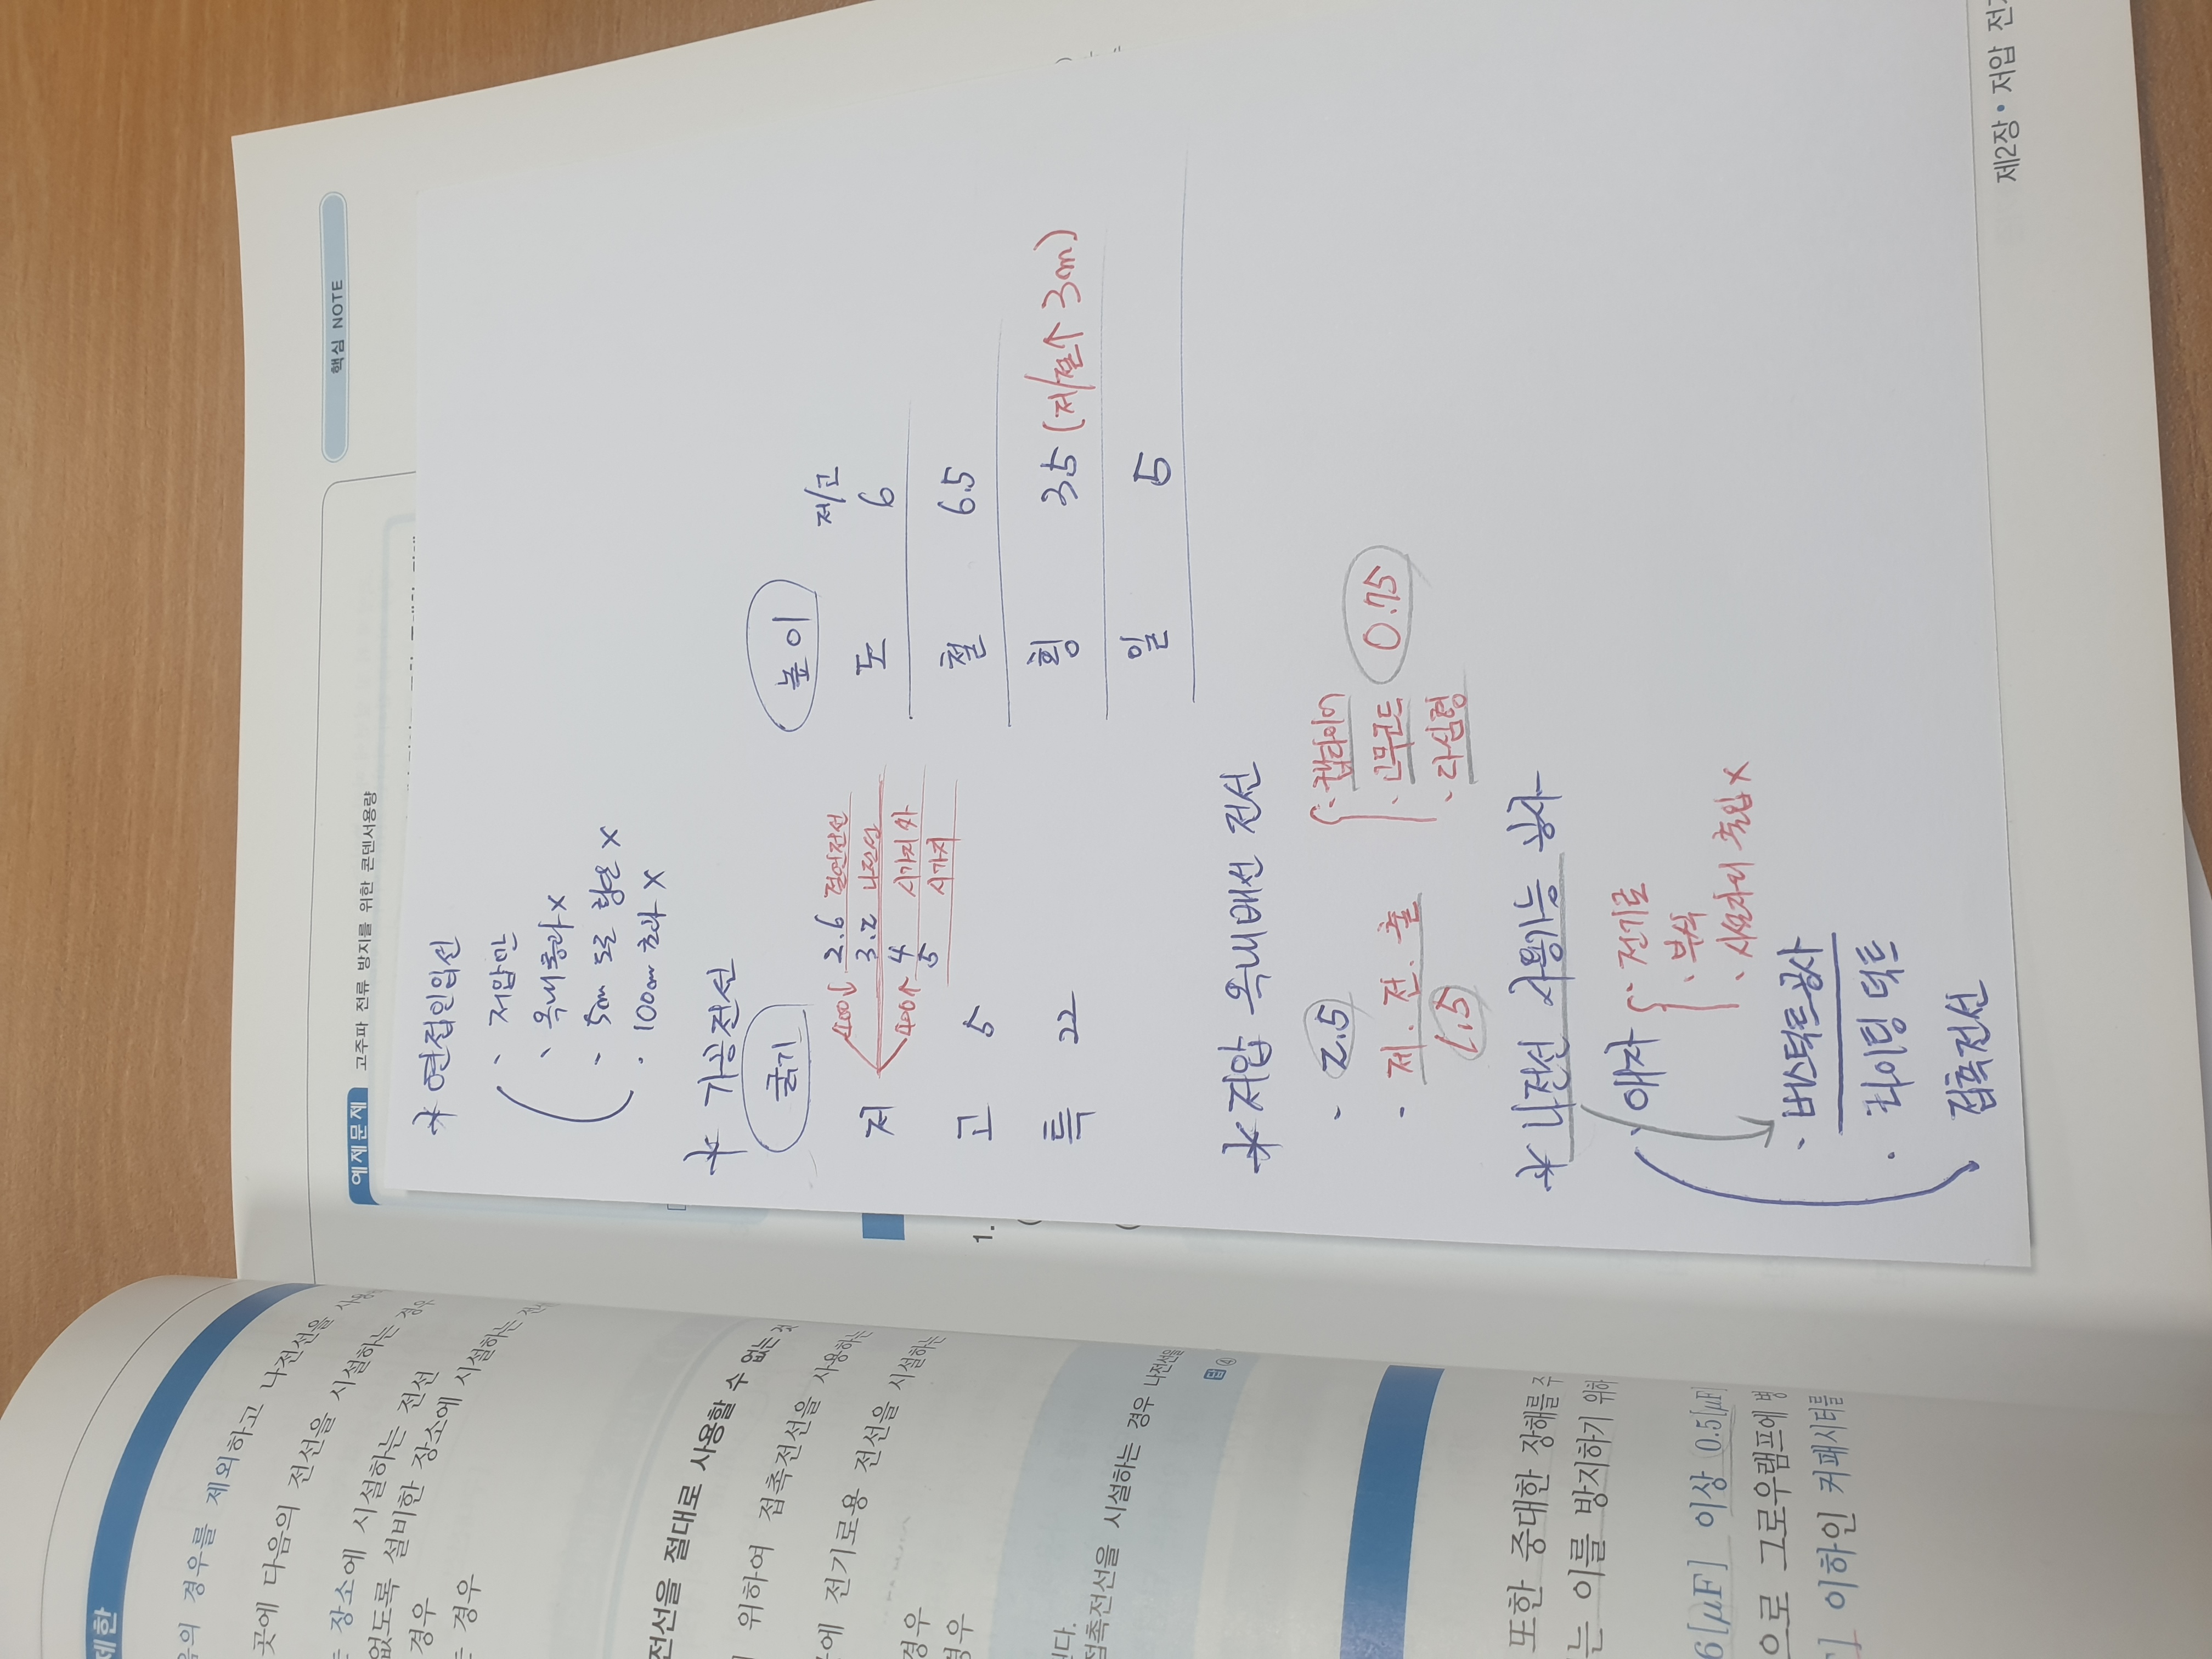 핵심 NOTE
예제문제 고주파 전류 방지를 위한 콘덴서용량
* 연접인입선
· 저압만
· 옥내통과 X
· 5m 도로 횡단 X
· 100m 초과 X
* 가공전선
굵기
저 400↓ 2.6 절연전선
3.2 나전선
400↑ 4 시가지 외
5 시가지
고 5
특 22
높이
저/고
도 6
철 6.5
횡 3.5 (저/절↑ 3m)
일 5
* 저압 옥내배선 전선
· 2.5
· 제. 전. 출
1.5
· 캡타이어
· 고무코드
· 다심형
0.75
* 나전선 사용가능 공사
· 애자
· 전기로
· 부식
· 취급자외 출입 X
· 버스덕트공사
· 라이팅 덕트
접촉전선
제2장 • 저압 전
1.
제한
음의 경우를 제외하고 나전선을
곳에 다음의 전선을 시설하는 경우
장소에 시설하는 전선
없도록 설비한 장소에 시설하는
경우
경우
전선을 절대로 사용할 수 없는
위하여 접촉전선을 사용하는
에 전기로용 전선을 시설하는
경우
경우
접촉전선을 시설하는 경우 나전선을
답 ④
또한 중대한 장해를
는 이를 방지하기 위하
6[μF] 이상 0.5[μF]
으로 그로우램프에 병
이하인 커패시터를